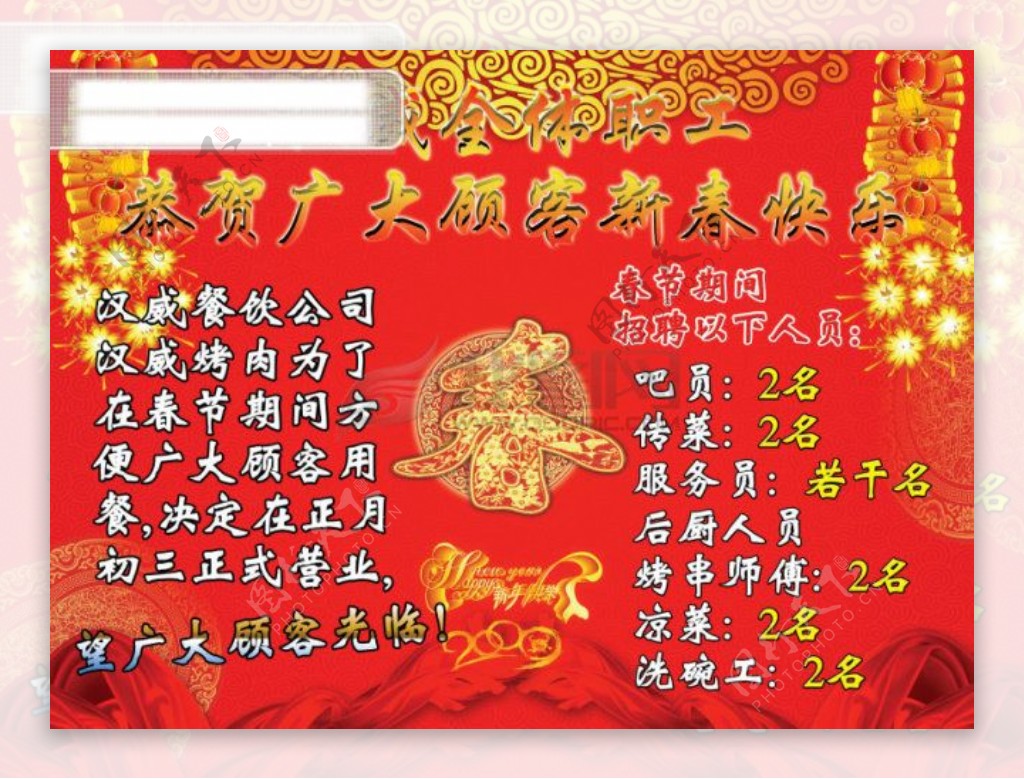 全体职工
恭贺广大顾客新春快乐
汉威餐饮公司
汉威烤肉为了
在春节期间方
便广大顾客用
餐,决定在正月
初三正式营业,
望广大顾客光临!
春
Happy
New year
新年快乐
2009
春节期间
招聘以下人员:
吧员: 2名
传菜: 2名
服务员: 若干名
后厨人员
烤串师傅: 2名
凉菜: 2名
洗碗工: 2名